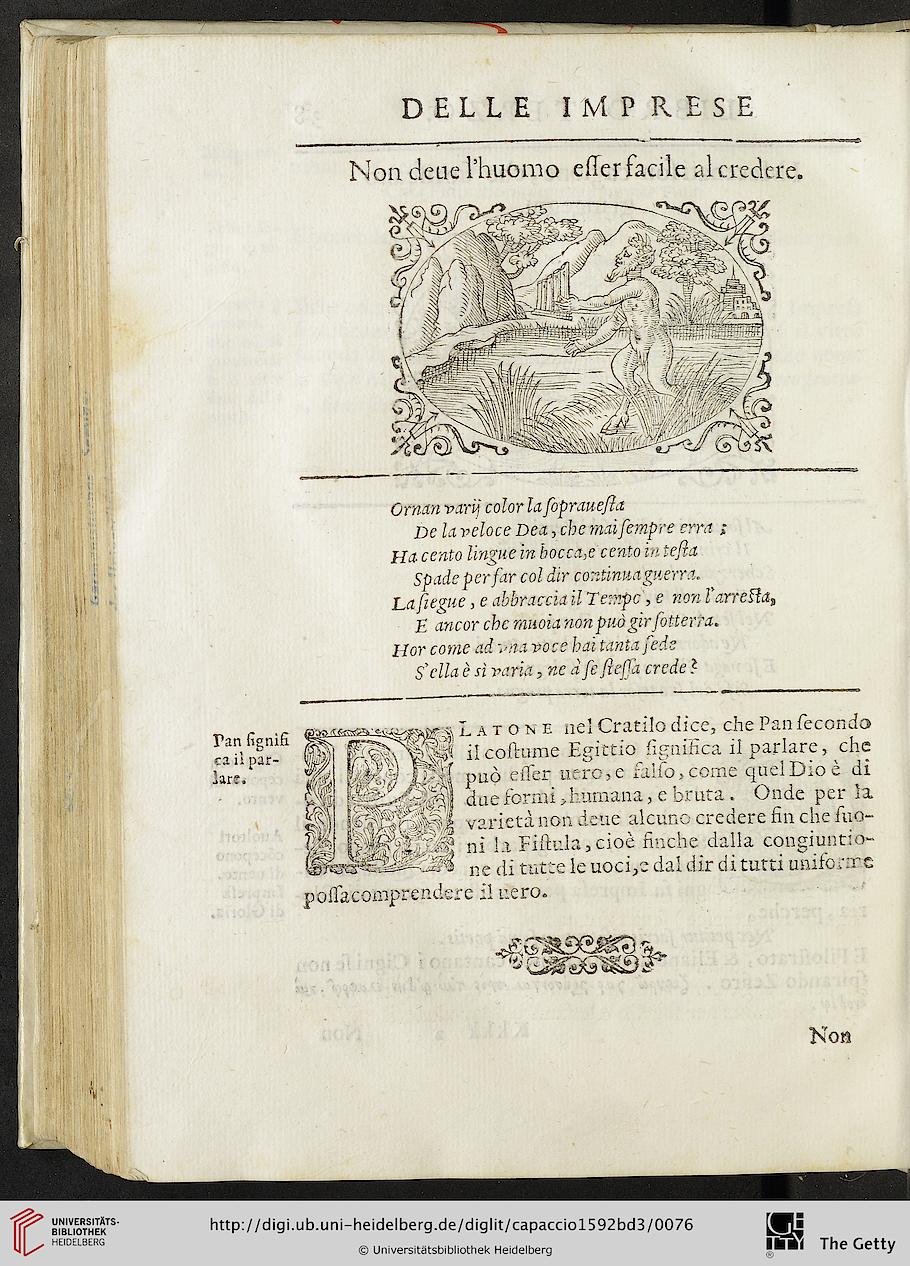 DELLE IMPRESE
Non deue l'huomo eſſer facile al credere.
Ornan varij color la ſoprauesta
De la veloce Dea, che mai ſempre erra ;
Ha cento lingue in bocca, e cento in testa
Spade per far col dir continua guerra.
La ſiegue, e abbraccia il Tempo, e non l'arresta,
E ancor che muoia non può gir ſotterra.
Hor come ad vna voce hai tanta fede
S'ella è sì varia, ne à ſe ſteſſa crede?
Pan ſignifi
ca il par-
lare.
PLATONE nel Cratilo dice, che Pan ſecondo
il coſtume Egittio ſignifica il parlare, che
può eſſer uero, e falſo, come quel Dio è di
due formi, humana, e bruta. Onde per la
varietà non deue alcuno credere fin che ſuo-
ni la Fiſtula, cioè finche dalla congiuntio-
ne di tutte le uoci, e dal dir di tutti uniforme
poſſa comprendere il uero.
Non
UNIVERSITÄTS-
BIBLIOTHEK
HEIDELBERG
http://digi.ub.uni-heidelberg.de/diglit/capaccio1592bd3/0076
© Universitätsbibliothek Heidelberg
GETTY
The Getty